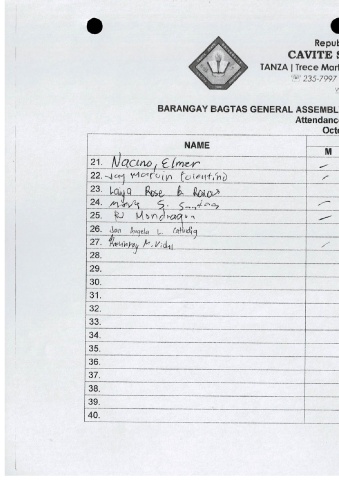 Repub
CAVITE S
TANZA | Trece Mart
☏ 235-7997
BARANGAY BAGTAS GENERAL ASSEMBL
Attendanc
Octo
NAME
M
21. Nacino, Elmer
22. Jay Marvin Tolentino
23. Rose
24. Mark S. Santos
25. RJ Mondragon
26. Jan Angelo L.
27. M. Vidal
28.
29.
30.
31.
32.
33.
34.
35.
36.
37.
38.
39.
40.